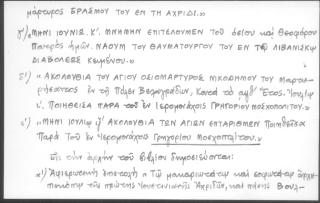 μάρτυρος ΕΡΑΣΜΟΥ ΤΟΥ ΕΝ ΤΗ ΑΧΡΙΔΙ.»
γ') «ΜΗΝΙ ΙΟΥΝΙῼ. Κ'. ΜΝΗΜΗΝ ΕΠΙΤΕΛΟΥΜΕΝ τοῦ ὁσίου καὶ Θεοφόρου
Πατρὸς ἡμῶν. ΝΑΟΥΜ ΤΟΥ ΘΑΥΜΑΤΟΥΡΓΟΥ ΤΟΥ ΕΝ Τῼ ΛΙΒΑΝΙΣΚῼ
ΔΙΑΒΟΛΕῼΣ κειμένου.»
δ') «ΑΚΟΛΟΥΘΙΑ ΤΟΥ ΑΓΙΟΥ ΟΣΙΟΜΑΡΤΥΡΟΣ ΝΙΚΟΔΗΜΟΥ τοῦ Μαρτυ-
ρήσαντος ἐν τῇ Πόλει Βελαγράδων, Κατὰ τὸ Ἔτος. Ἰουλίῳ
ΠΟΙΗΘΕΙΣΑ ΠΑΡΑ τοῦ ἐν Ἱερομονάχοις ΓΡΗΓΟΡΙΟΥ ΜΟΣΧΟΠΟΛΙΤΟΥ.»
ε') «ΜΗΝΙ ΙΟΥΛΙῼ ΑΚΟΛΟΥΘΙΑ ΤΩΝ ΑΓΙΩΝ ΕΠΤΑΡΙΘΜΩΝ Ποιηθεῖσα
Παρὰ Τοῦ ἐν Ἱερομονάχοις Γρηγορίου Μοσχοπολίτου.»
Εἰς τὴν ἀρχὴν τοῦ βιβλίου δημοσιεύονται:
1) Ἀφιερωτικὴ ἐπιστολὴ «Τῷ μακαριωτάτῳ καὶ σοφωτάτῳ ἀρχι-
επισκόπῳ τῆς πρώτης Ἰουστινιανῆς Ἀχριδῶν, καὶ πάσης Βουλ-